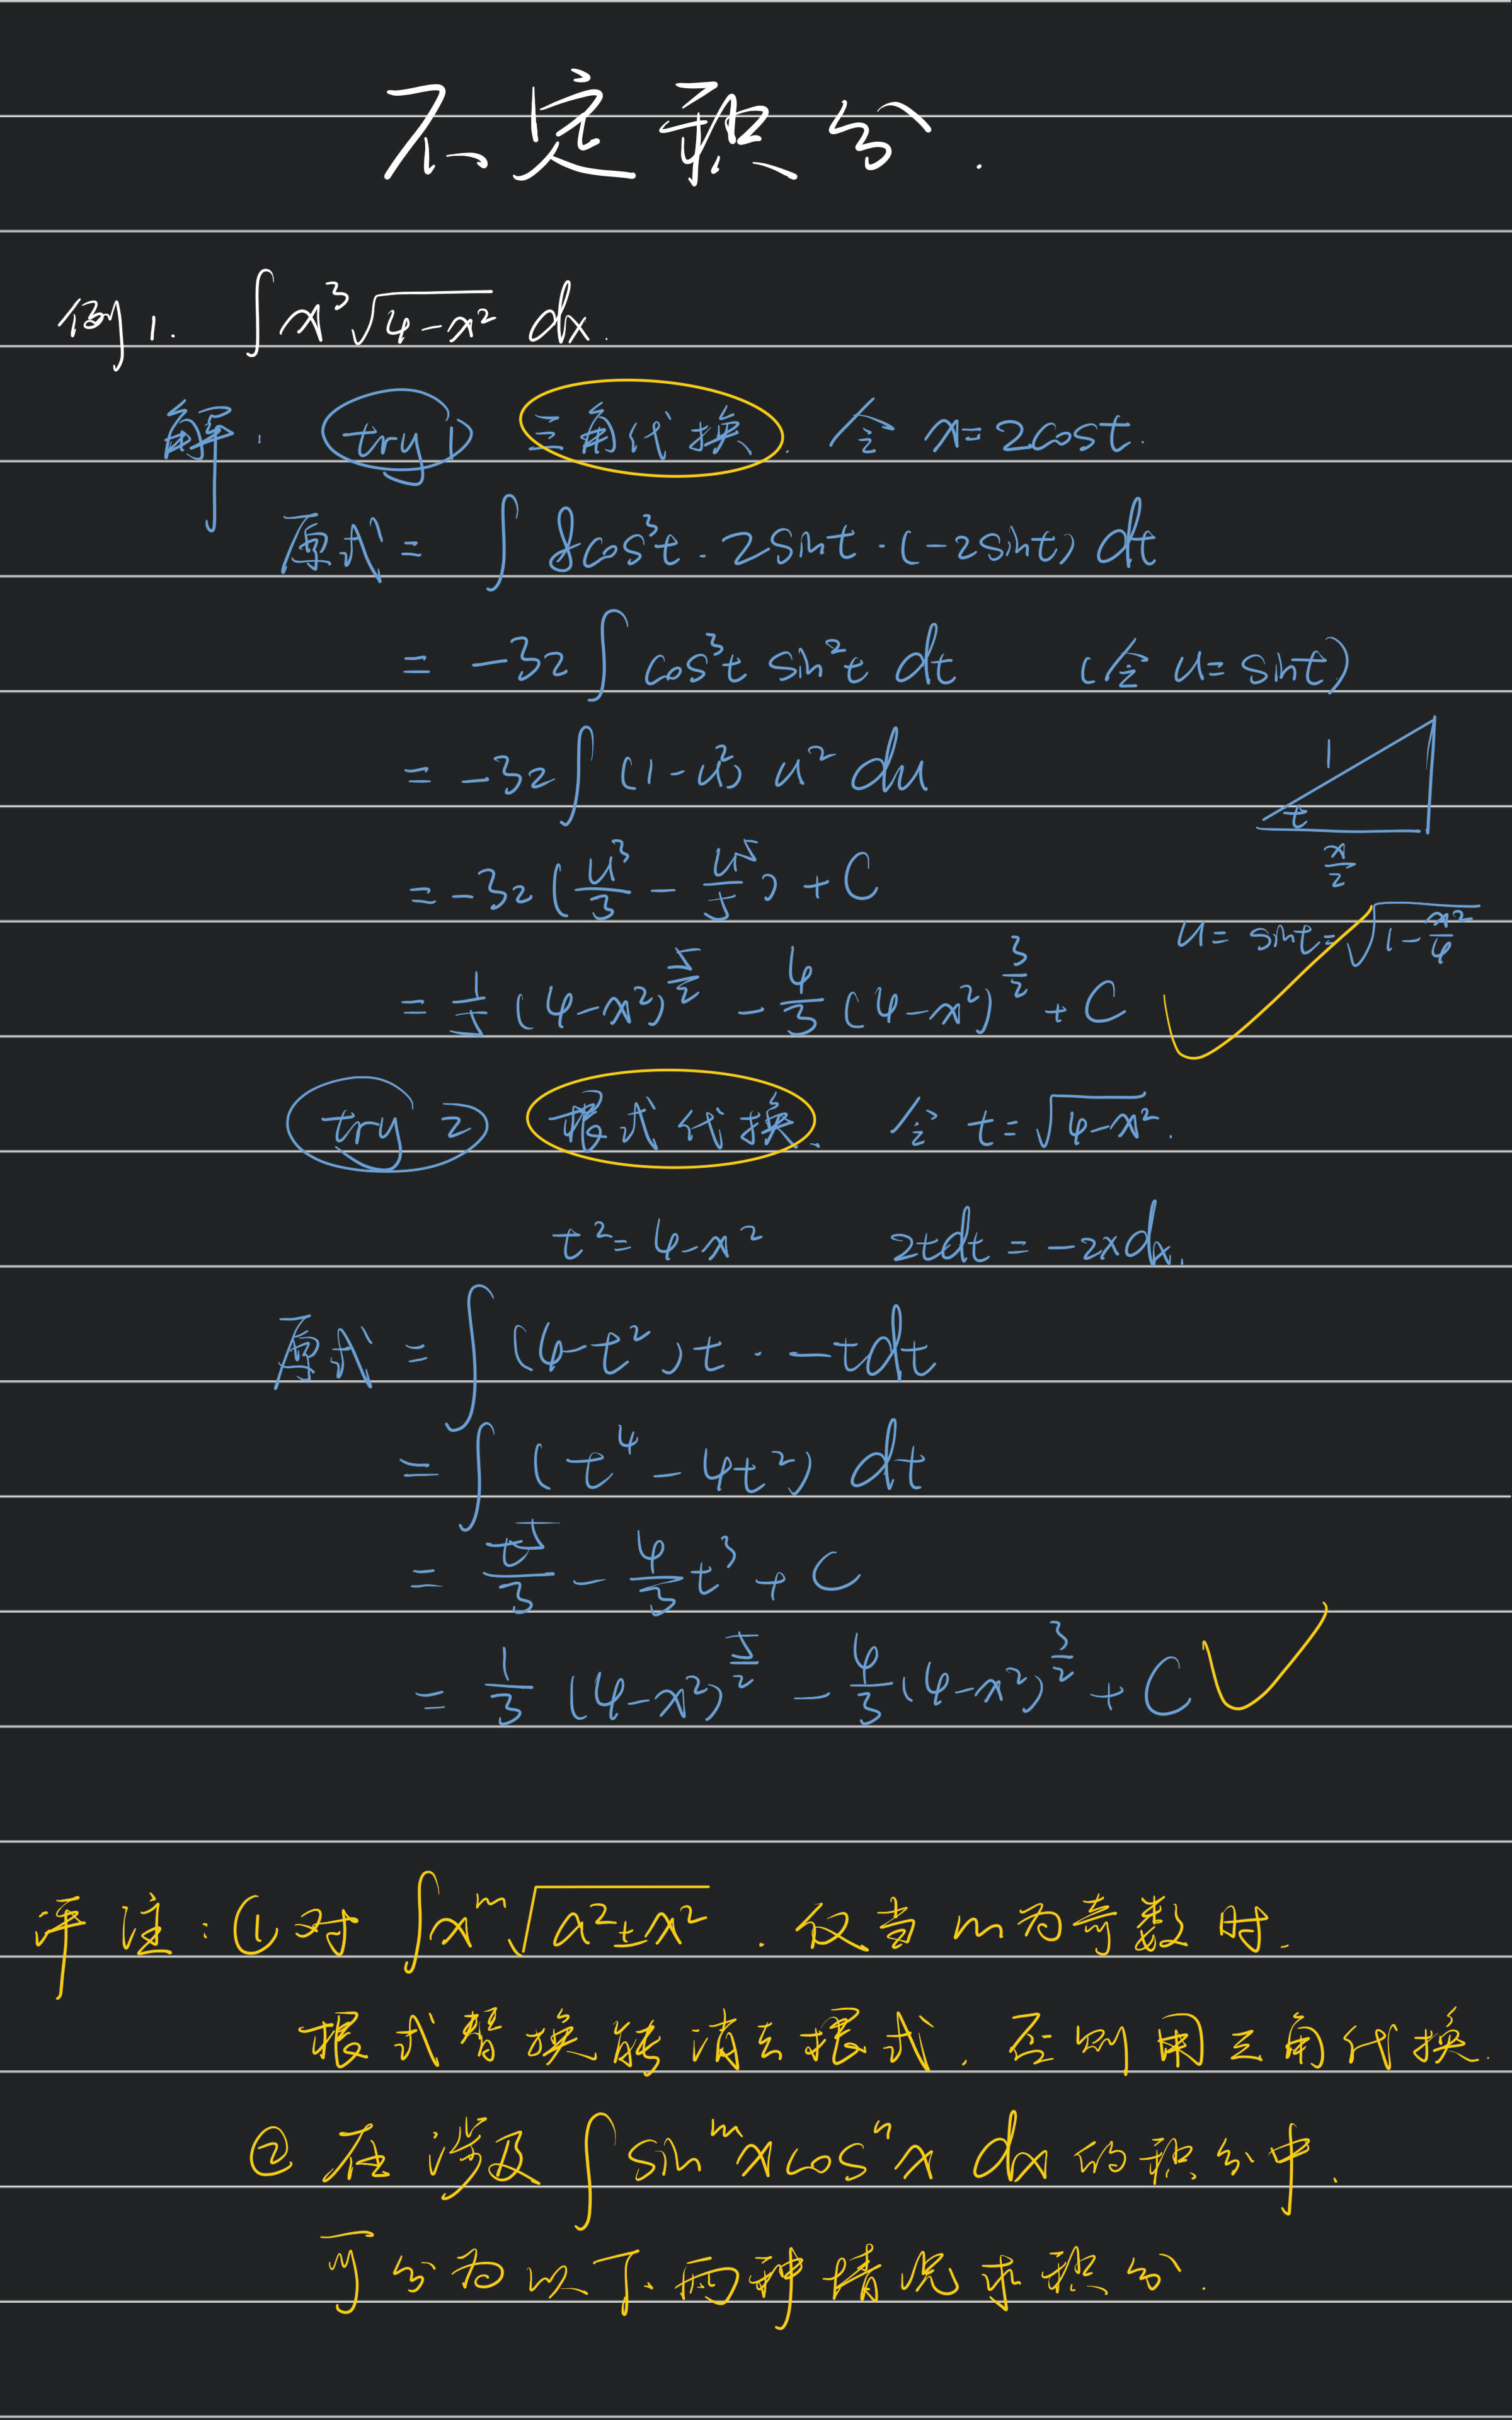 不定积分.
例1. ∫x³√(4-x²) dx.
解. try 1) 三角代换. 令 x=2cost.
原式 = ∫ 8cos³t · 2sint · (-2sint) dt
= -32∫ cos³t sin²t dt (令 u=sint)
= -32∫ (1-u²) u² du
1
t
x/2
= -32(u³/3 - u⁵/5) + C
u = sint = √(1-x²/4)
= 1/5 (4-x²)^(5/2) - 4/3 (4-x²)^(3/2) + C
try 2) 根式代换. 令 t=√(4-x²).
t²=4-x² 2tdt=-2xdx.
原式 = ∫(4-t²)t · -tdt
= ∫(t⁴-4t²) dt
= t⁵/3 - 4/3 t³ + C
= 1/3 (4-x²)^(5/2) - 4/3 (4-x²)^(3/2) + C
评注: ① 对 ∫xᵐ√(a²±x²). 仅当 m为奇数时.
根式替换能消去根式. 否则用三角代换.
② 在涉及 ∫sinᵐxcosⁿx dx 的积分中.
可分为以下两种情况求积分.